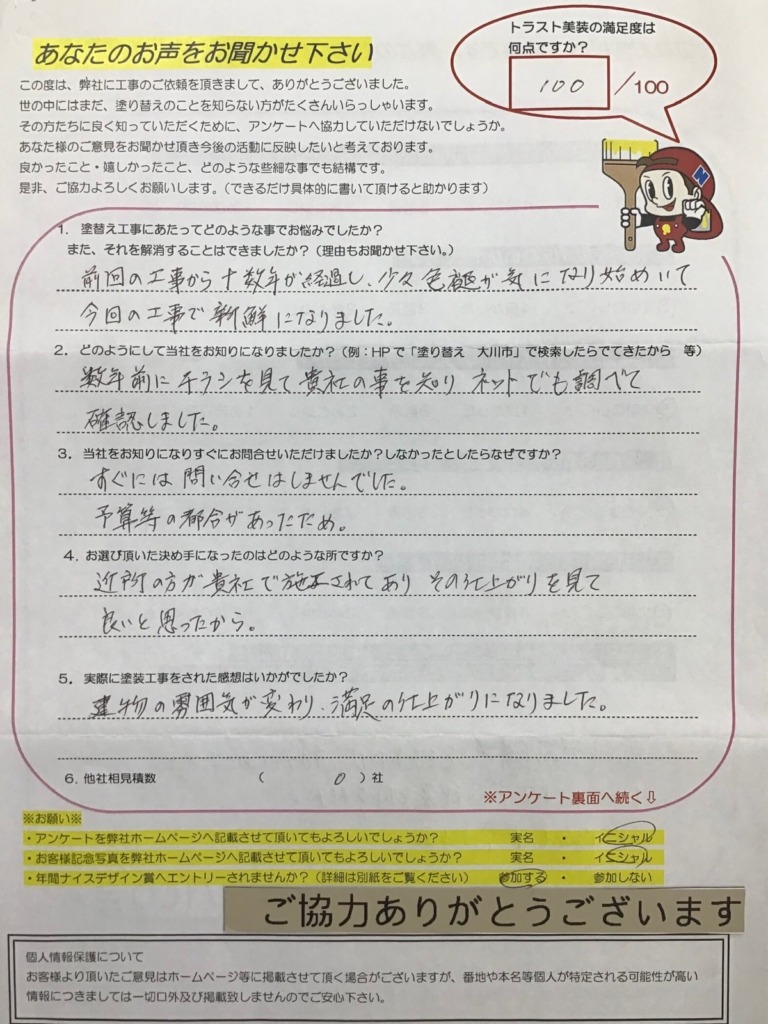 あなたのお声をお聞かせ下さい
トラスト美装の満足度は
何点ですか?
100 /100
この度は、弊社に工事のご依頼を頂きまして、ありがとうございました。
世の中にはまだ、塗り替えのことを知らない方がたくさんいらっしゃいます。
その方たちに良く知っていただくために、アンケートへ協力していただけないでしょうか。
あなた様のご意見をお聞かせ頂き今後の活動に反映したいと考えております。
良かったこと・嬉しかったこと、どのような些細な事でも結構です。
是非、ご協力よろしくお願いします。(できるだけ具体的に書いて頂けると助かります)
N
1. 塗替え工事にあたってどのような事でお悩みでしたか?
また、それを解消することはできましたか?(理由もお聞かせ下さい。)
前回の工事から十数年が経過し、少々色褪が気になり始めいて
今回の工事で新鮮になりました。
2. どのようにして当社をお知りになりましたか?(例:HPで「塗り替え 大川市」で検索したらでてきたから 等)
数年前にチラシを見て貴社の事を知り ネットでも調べて
確認しました。
3. 当社をお知りになりすぐにお問合せいただけましたか?しなかったとしたらなぜですか?
すぐには問い合せはしませんでした。
予算等の都合があったため。
4. お選び頂いた決め手になったのはどのような所ですか?
近所の方が貴社で施工されてあり その仕上がりを見て
良いと思ったから。
5. 実際に塗装工事をされた感想はいかがでしたか?
建物の雰囲気が変わり、満足の仕上がりになりました。
6. 他社相見積数 ( 0 )社
※アンケート裏面へ続く⇩
※お願い※
・アンケートを弊社ホームページへ記載させて頂いてもよろしいでしょうか? 実名 ・ イニシャル
・お客様記念写真を弊社ホームページへ記載させて頂いてもよろしいでしょうか? 実名 ・ イニシャル
・年間ナイスデザイン賞へエントリーされませんか?(詳細は別紙をご覧ください) 参加する ・ 参加しない
ご協力ありがとうございます
個人情報保護について
お客様より頂いたご意見はホームページ等に掲載させて頂く場合がございますが、番地や本名等個人が特定される可能性が高い
情報につきましては一切口外及び掲載致しませんのでご安心下さい。